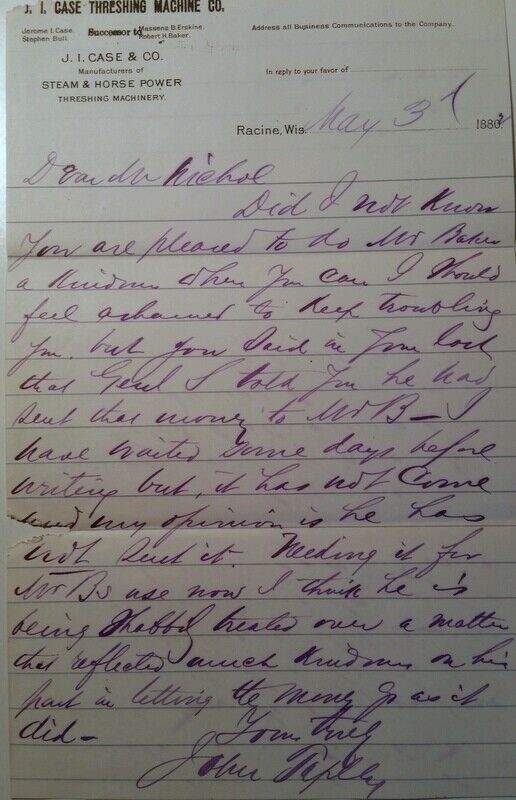 J. I. CASE THRESHING MACHINE CO.
Jerome I. Case. Massena B. Erskine.
Stephen Bull. Successor to Robert H. Baker.
Address all Business Communications to the Company.
J. I. CASE & CO.
Manufacturers of
STEAM & HORSE POWER
THRESHING MACHINERY.
In reply to your favor of
Racine, Wis. May 31 1882
Dear Mr Nichol
Did I not Know
You are pleased to do Mr Baker
a Kindness when You can I Should
feel ashamed to Keep troubling
You. but you Said in Your last
that Genl S told You he had
sent that money to Mr B— I
have waited some days before
writing but, it has not Come
and my opinion is he has
not sent it. Needing it for
Mr Bs use now I think he is
being Shabbily treated over a matter
that reflected much Kindness on his
part in letting the money go as it
did—
Yours truly
John